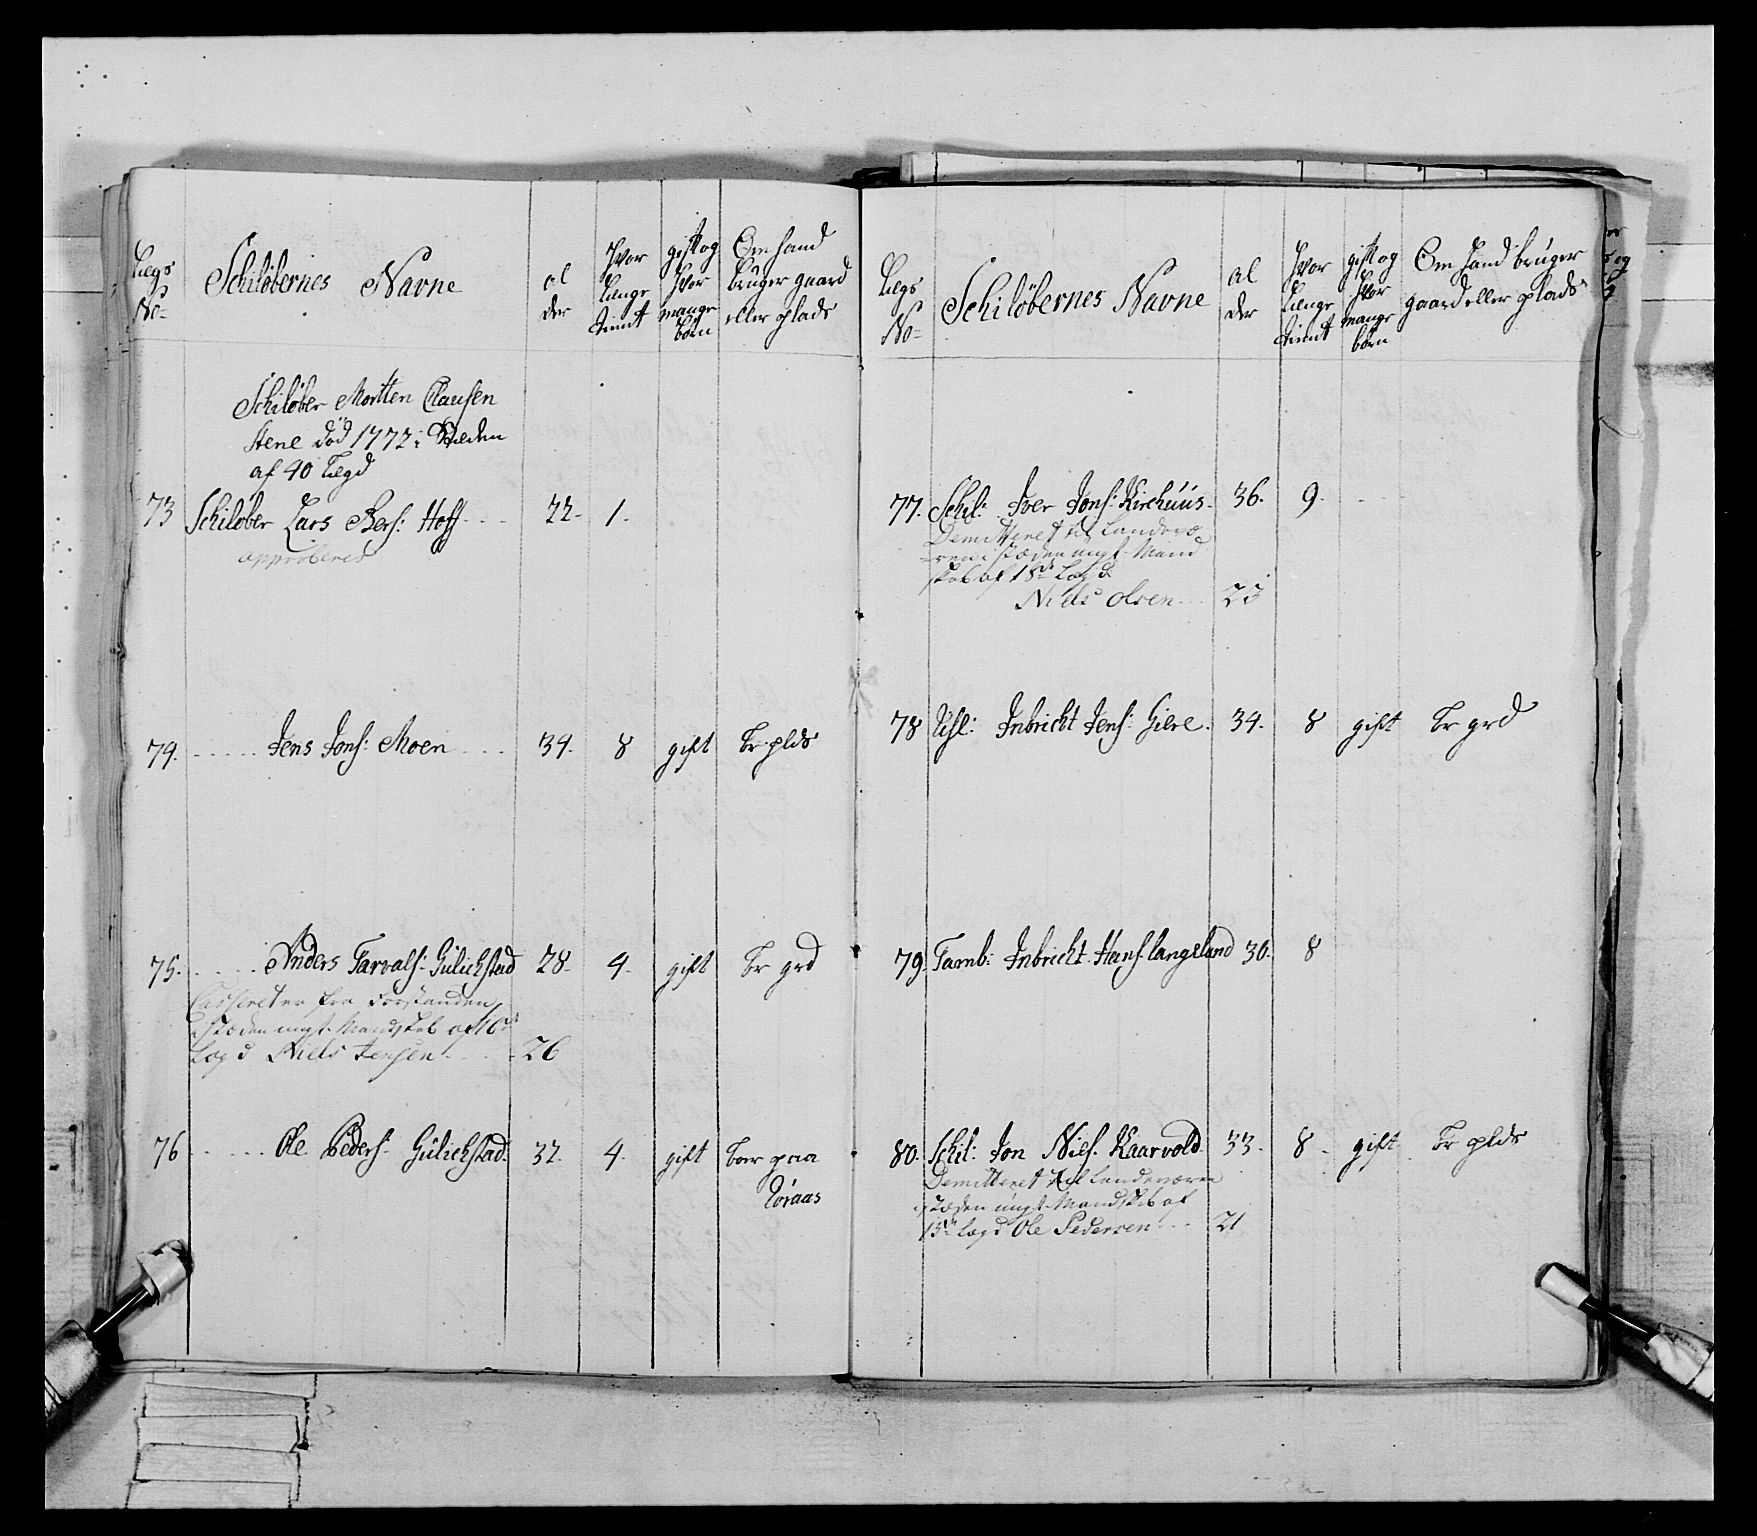 Lægs No- | Schilöbernes Navne | al der | Hvor længe tient | gift og Hvor mange börn | Om hand bruger gaard eller plads
Schilöber Morten Clausen
Stene död 1772 i Steden
af 40 Lægd
73 Schilöber Lars Bers: Hoff 22 1
approberes
74. Jens Jons: Moen 34. 8 gift br plds
75. Anders Tarvals: Gulichstad 28 4 gift br grd
Casseret fra Forstanden
i stæden ungt Mandskab af 10de
Lægd Niels Jensen 26
76 Ole Peders: Gulichstad 32 4 gift boer paa
Loraas
Lægs No- | Schilöbernes Navne | al der | Hvor længe tient | gift og Hvor mange börn | Om Hand bruger gaard eller plads
77. Schil: Iver Jons: Kirchuus 36. 9
Demitteret til Landevæ-
ren i stæden ungt Mand
skab af 18de Lægd
Niels Olsen 23
78 Usl: Inbricht Jens: Giere. 34. 8 gift br grd
79. Tamb: Inbricht Hans: Langeland 30. 8
80. Schil: Jon Niels: Kaarvold 33 8 gift br plds
Demitteret til Landeværn
i stæden ungt Mandskab af
15de Lægd Ole Pedersen 21